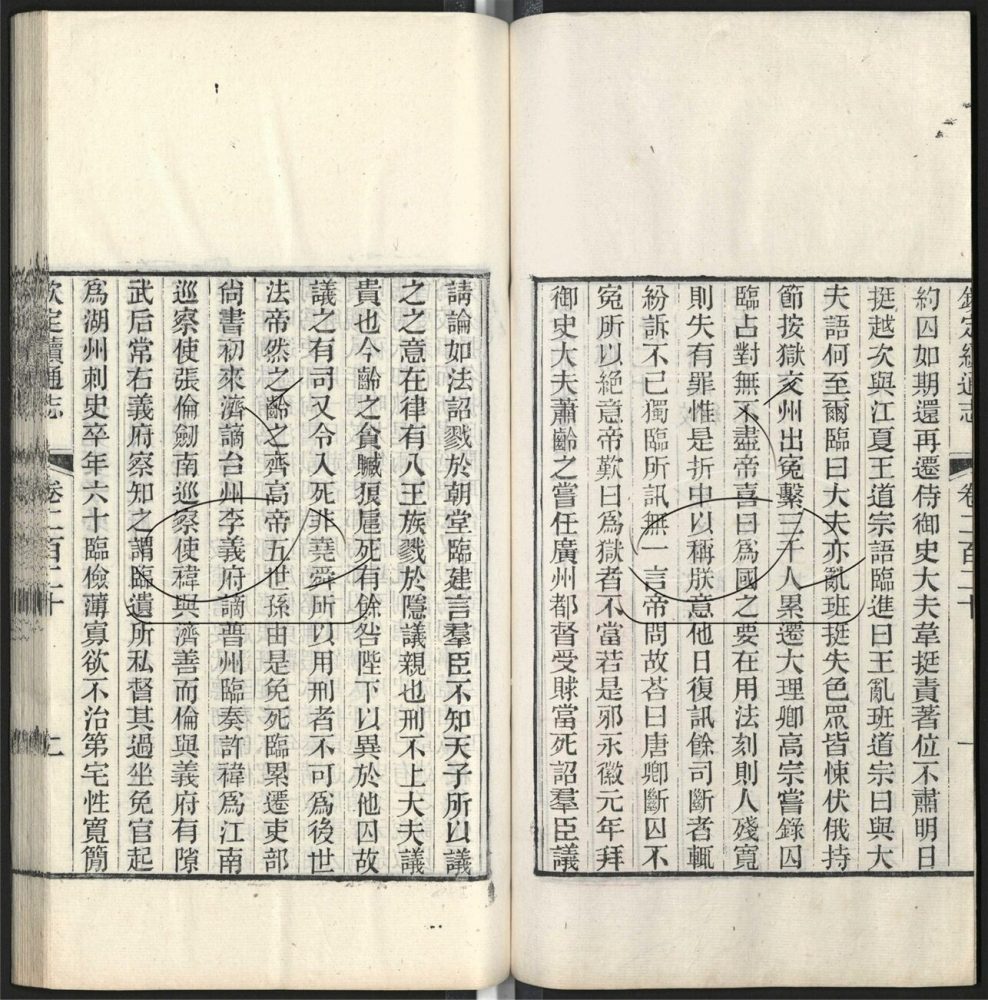 欽定續通志 卷二百二十
約囚如期還再遷侍御史大夫韋挺責著位不肅明日
挺越次與江夏王道宗語臨進曰王亂班道宗曰與大
夫語何至爾臨曰大夫亦亂班挺失色眾皆悚伏俄持
節按獄交州出冤繫三千人累遷大理卿高宗嘗錄囚
臨占對無不盡帝喜曰爲國之要在用法刻則人殘寬
則失有罪惟是折中以稱朕意他日復訊餘司斷者輒
紛訴不已獨臨所訊無一言帝問故荅曰唐卿斷囚不
冤所以絕意帝歎曰爲獄者不當若是邪永徽元年拜
御史大夫蕭齡之嘗任廣州都督受賕當死詔羣臣議
請論如法詔戮於朝堂臨建言羣臣不知天子所以議
之之意在律有八王族戮於隱議親也刑不上大夫議
貴也今齡之貪贓狠扈死有餘咎陛下以異於他囚故
議之有司又令入死非堯舜所以用刑者不可爲後世
法帝然之齡之齊高帝五世孫由是免死臨累遷吏部
尙書初來濟謫台州李義府謫普州臨奏許禕爲江南
巡察使張倫劒南巡察使禕與濟善而倫與義府有隙
武后常右義府察知之謂臨遣所私督其過坐免官起
爲湖州刺史卒年六十臨儉薄寡欲不治第宅性寬簡
欽定續通志 卷二百二十 七